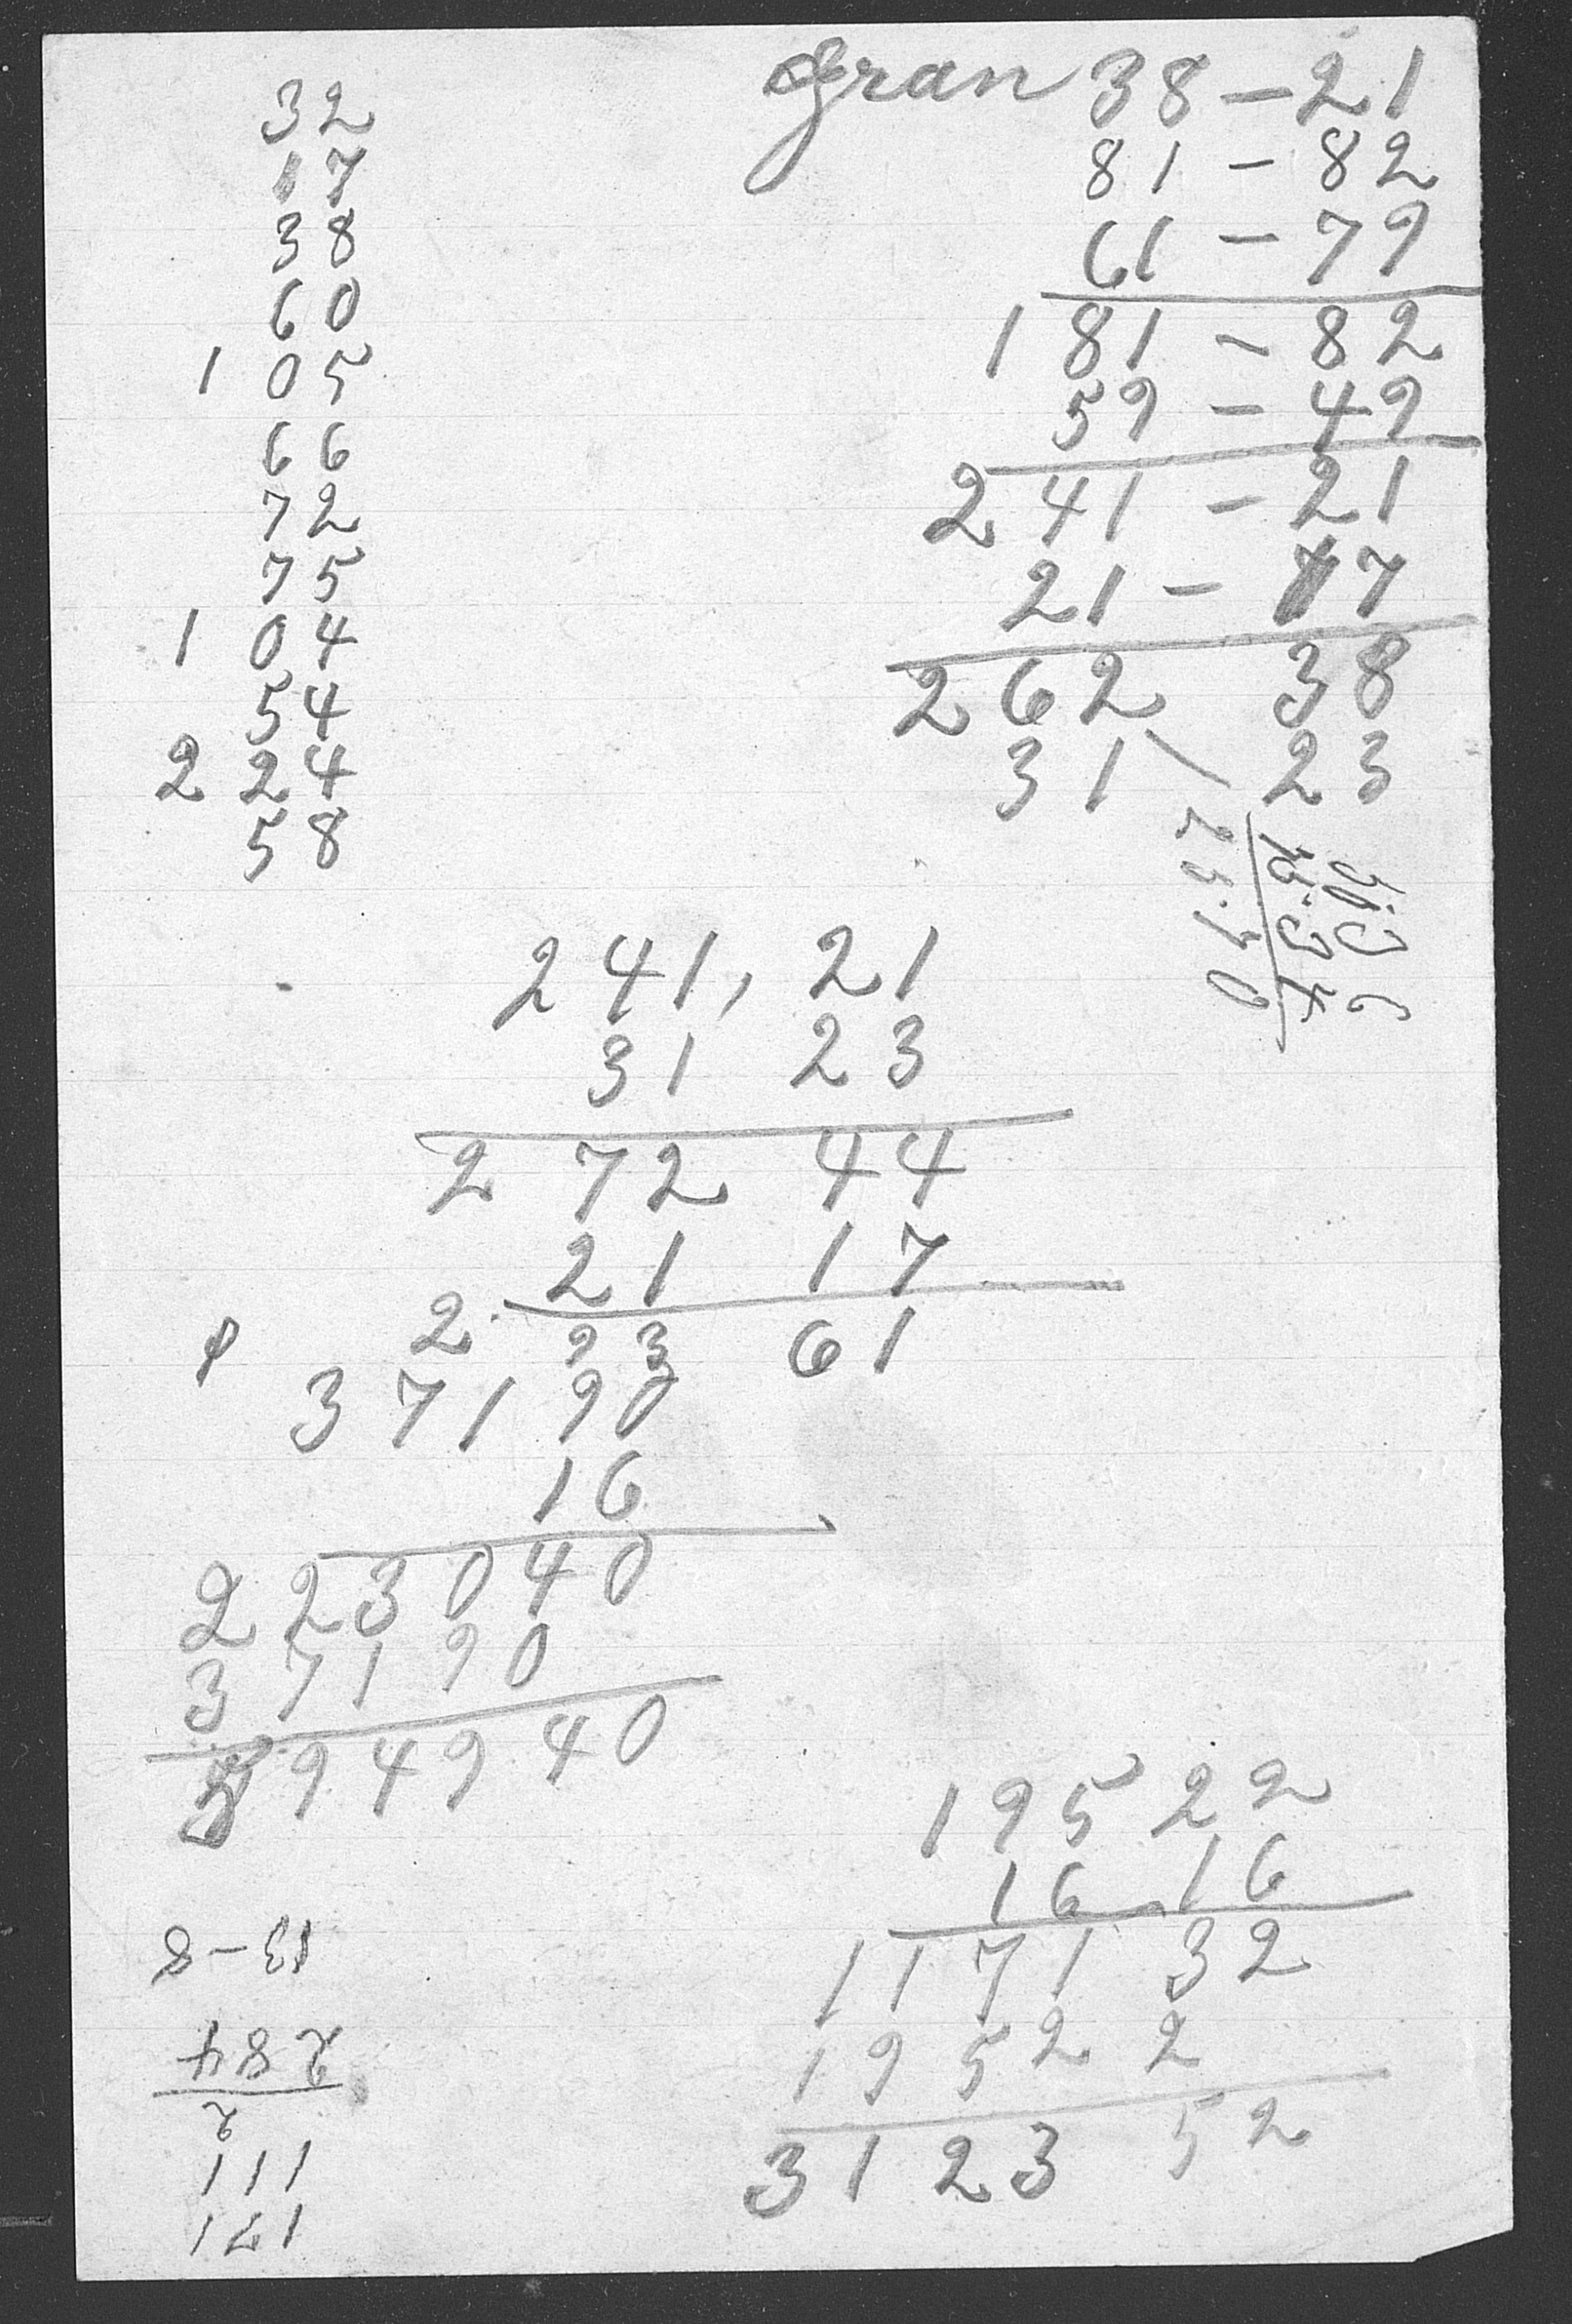 32
17
38
60
1 05
66
72
75
1 04
54
2 24
58
Gran 38 - 21
81 - 82
61 - 79
1 81 - 82
59 - 49
2 41 - 21
21 - 17
2 62 38
31 23
241, 21
31 23
2 72 44
21 17
2. 93 61
3 71 90
16
223040
37190
594940
19522
16 16
1171 32
1952 2
3123 52
13-8
284
2
111
171